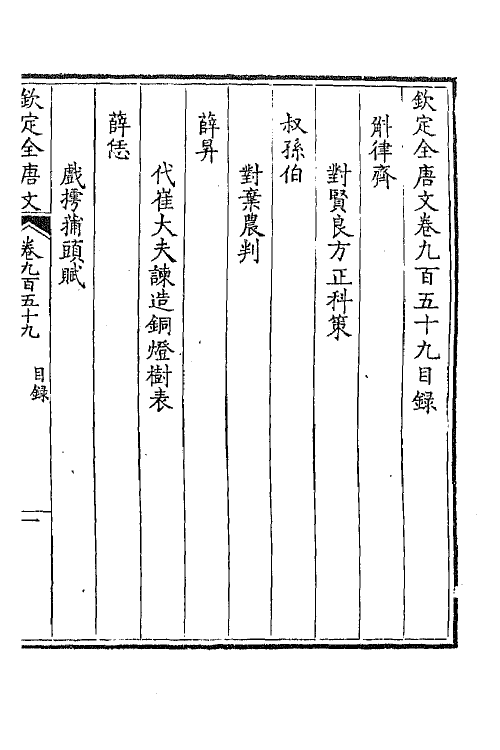 欽定全唐文卷九百五十九目録
斛律齊
對賢良方正科策
叔孫伯
對棄農判
薛昇
代崔大夫諫造銅燈樹表
薛恁
戲樗蒱頭賦
欽定全唐文
卷九百五十九
目録
一